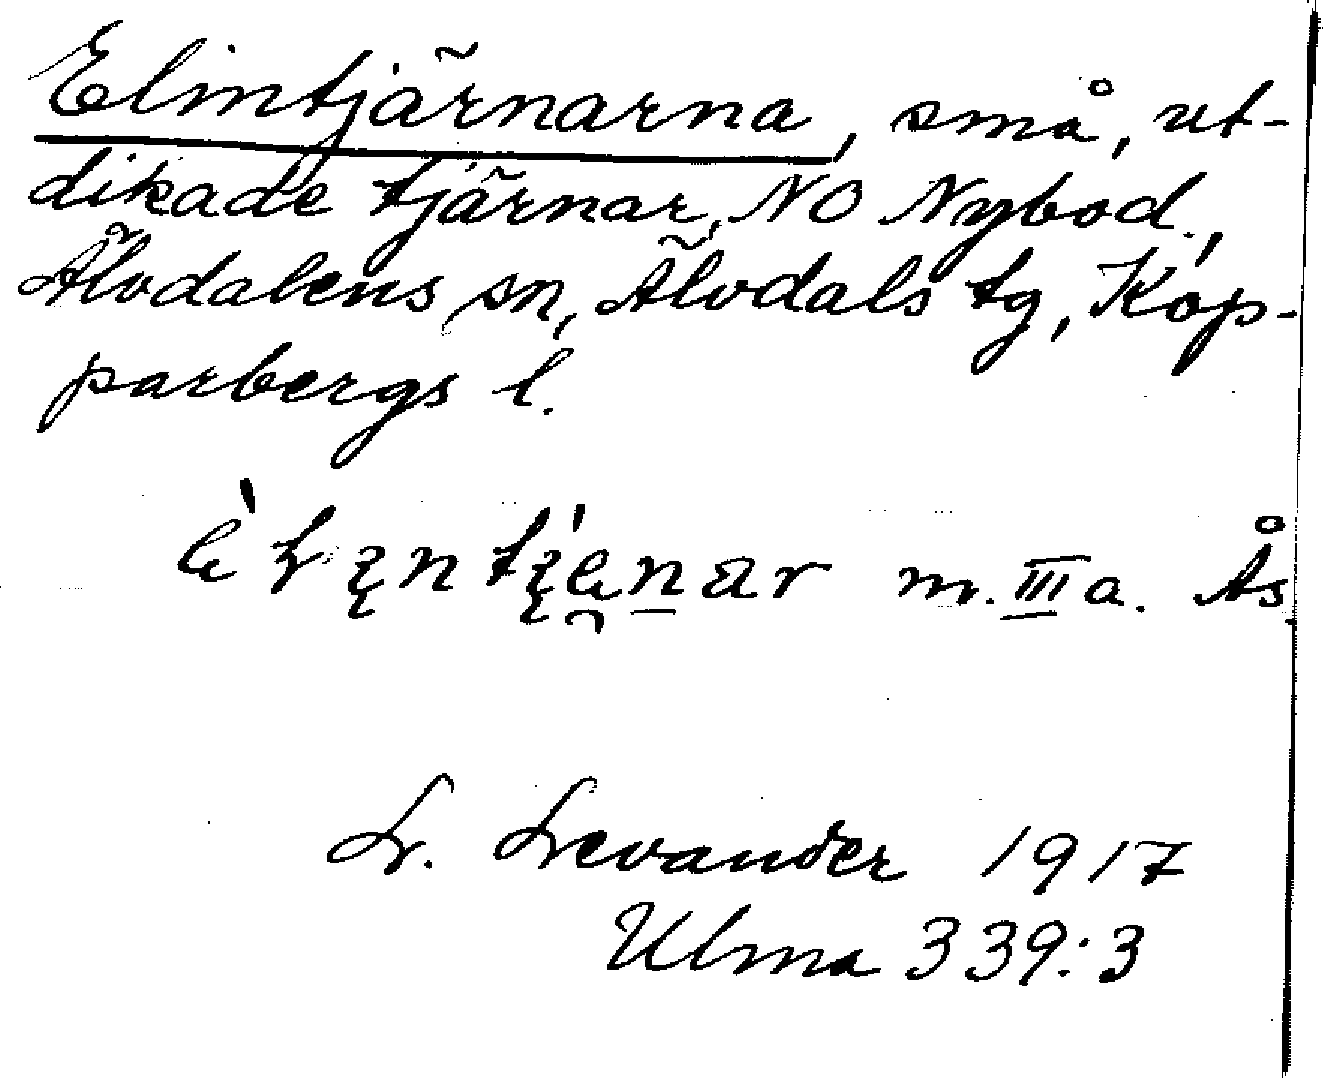 Elintjärnarna, små, ut-
dikade tjärnar, NO Nybod.,
Älvdalens sn, Älvdals tg, Kop-
parbergs l.
m. III a. Ås
L. Levander 1917
Ulma 339:3